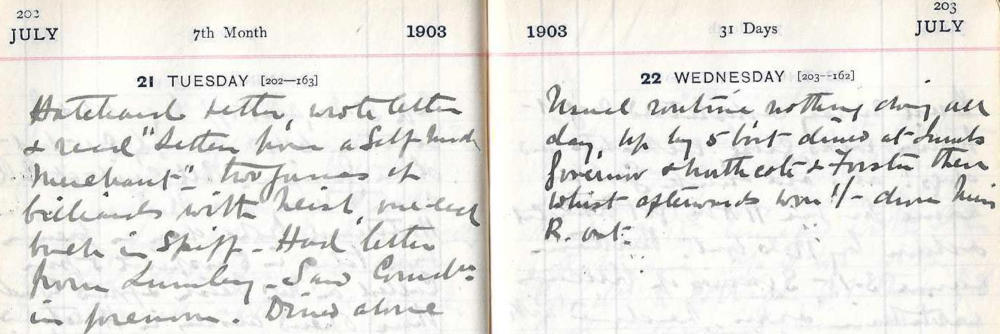 202
JULY 7th Month 1903
21 TUESDAY [202—163]
letter, wrote letter
& read "Letters from a Self-Made
Merchant" - two games of
billiards with
back in Spiff - Had letter
from Lumley - Saw
in forenoon. Dined alone
203
1903 31 Days JULY
22 WEDNESDAY [203—162]
Usual routine nothing doing all
day, up by 5 bt dined at
Governor & Northcote & Forster there
whist afterwards won 1/- 
R. out.